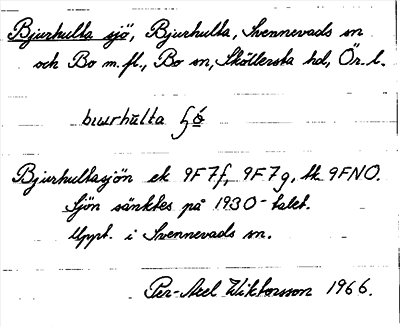 Bjurhulta sjö, Bjurhulta, Svennevads sn
och Bo m.fl., Bo sn, Sköllersta hd, Ör. l.
bjurhulta
Bjurhultasjön ek 9F7f, 9F7g, tk 9FNO.
Sjön sänktes på 1930-talet.
Uppt. i Svennevads sn.
Per-Axel Wiktorsson 1966.